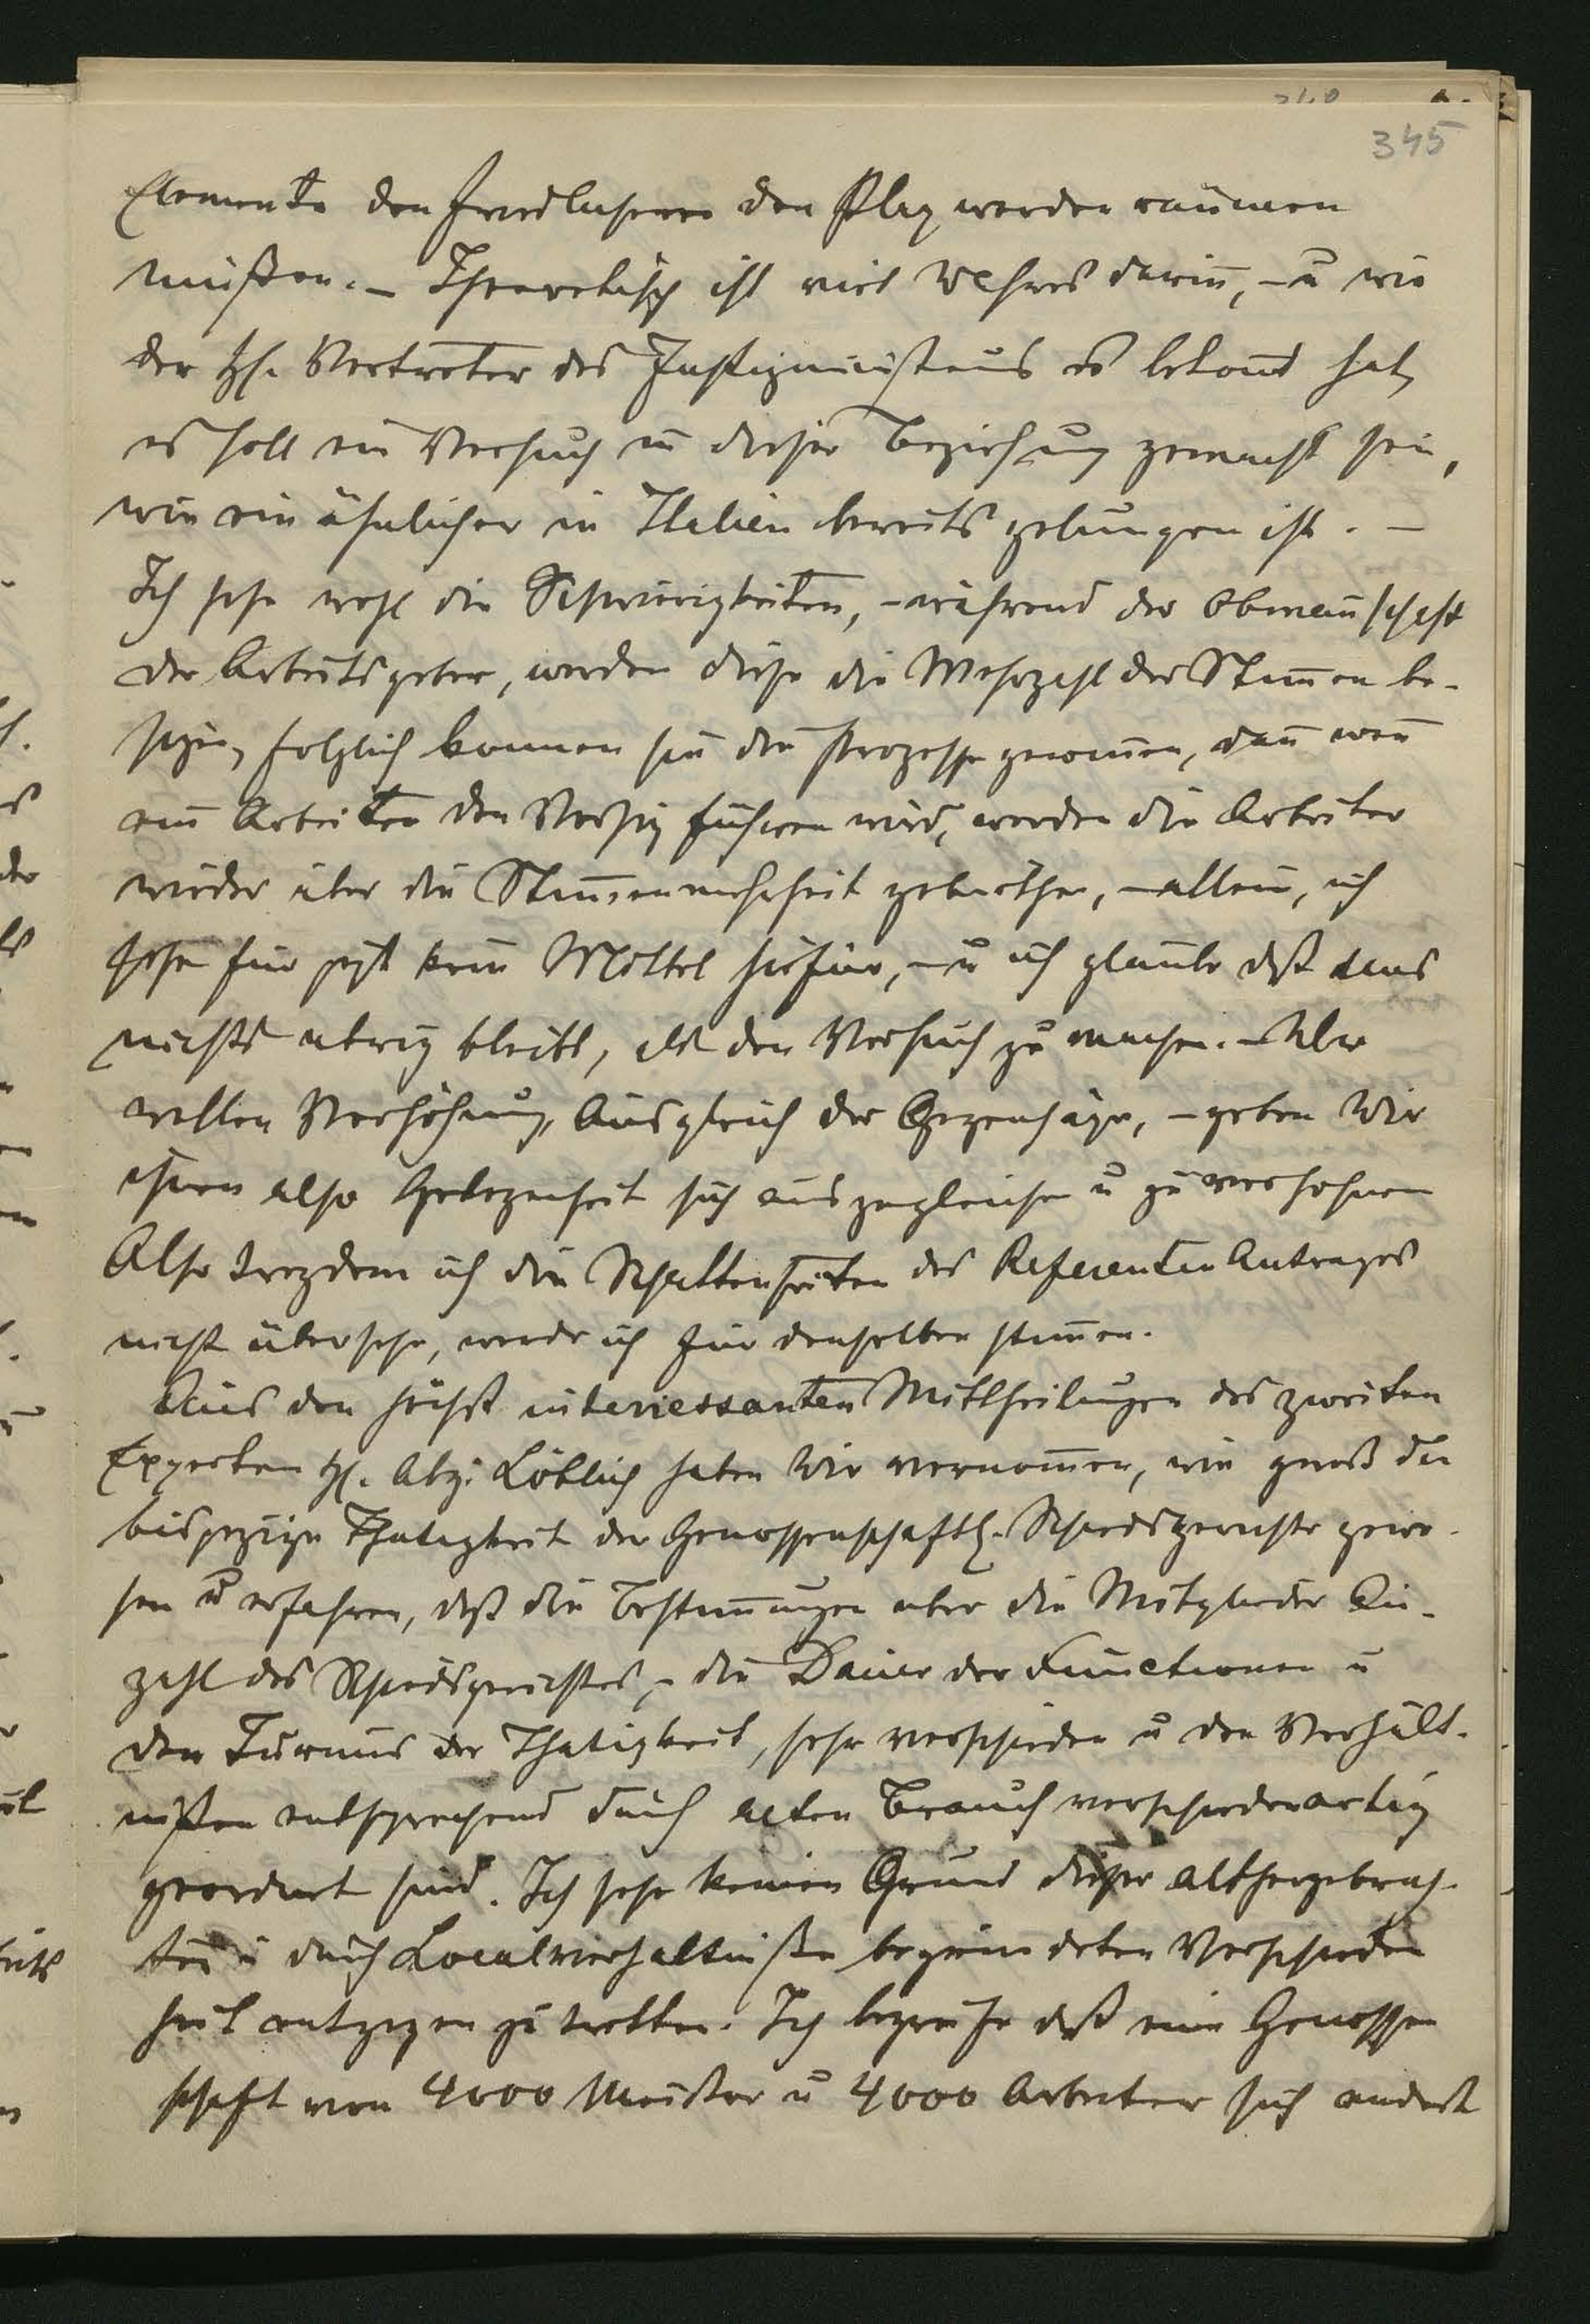 345
Elemente den friedlichern den Plaz werden räumen
müßen. – Theoretisch ist viel Wahres darin̄, – u wie
der H. Vertreter des Justizministeriums es betont hat,
es soll ein Versuch in dieser Beziehung gemacht sein,
wie ein ähnlicher in Italien bereits gelungen ist. –
Ich sehe wohl die Schwierigkeiten, – während der Obman̄schaft
der Arbeitsgeber, werden diese die Mehrzahl der Stim̄en be-
sizen, folglich konnen sie die Prozesse gewin̄en, dan̄ wen̄
ein Arbeiter den Vorsiz führen wird, werden die Arbeiter
wieder über die Stim̄enmehrheit gebiethen, – allein, ich
sehe für jezt kein Mittel hiefür, – u ich glaube daß uns
nichts ubrig bleibt, als den Versuch zu machen. – Wir
wollen Versöhnung, Ausgleich der Gegensäze, – geben Wir
ihnen also Gelegenheit sich auszugleichen u zu versohnen
Also trozdem ich die Schattenseiten des Referenten Antrages
nicht übersehe, werde ich für denselben stim̄en.
Aus den höchst interiessanten Mittheilungen des zweiten
Experten H. Abg: Löblich haben Wir vernom̄en, wie groß die
bisjezige Thatigkeit der Genossenschaftl. Schiedsgerichte gewe-
sen u erfahren, daß die Bestim̄ungen uber die Mitglieder An-
zahl des Schiedsgerichtes, – die Dauer der Functionen u
den Turnus der Thatigkeit, sehr verschieden u den Verhält-
nißen entsprechend durch alten Brauch verschiedenartig
geordnet sind. Ich sehe keinen Grund dieser althergebrach-
ten u durch Localverhaltniße begründeten Verschieden
heit entgegen zu tretten. Ich begreife daß eine Genossen
schaft von 4000 Meister u 4000 Arbeiter sich anderst